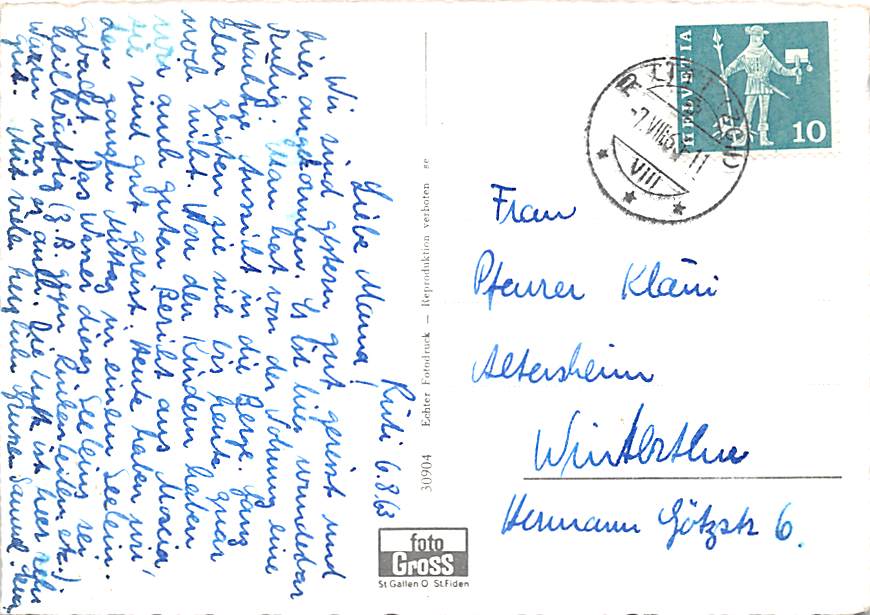 Rüti 6.8.63
Liebe Mama!
Wir sind gestern gut gereist und
hier angekommen. Es ist hier wunderbar
ruhig. Man hat von der Wohnung eine
prächtige Aussicht in die Berge. Ganz
klar zeigten sie sich bis heute zwar
noch nicht. Von den Kindern haben
wir auch guten Bericht aus Moscia,
sie sind gut gereist. Heute haben wir
den ganzen Mittag in einem Seelein
gebadet. Das Wasser dieses Seeleins sei
heilkräftig (z.B. gegen etc.);
warm war es auch. Die Luft ist hier sehr
gut. Mit vielen herzlichen Grüssen Samuel.
30904 Echter Fotodruck — Reproduktion verboten ge
foto
Gross
St Gallen O St.Fiden
HELVETIA
10
VIII
Frau
Pfeurer Kläui
Altersheim
Winterthur
Hermann Götzstr 6.